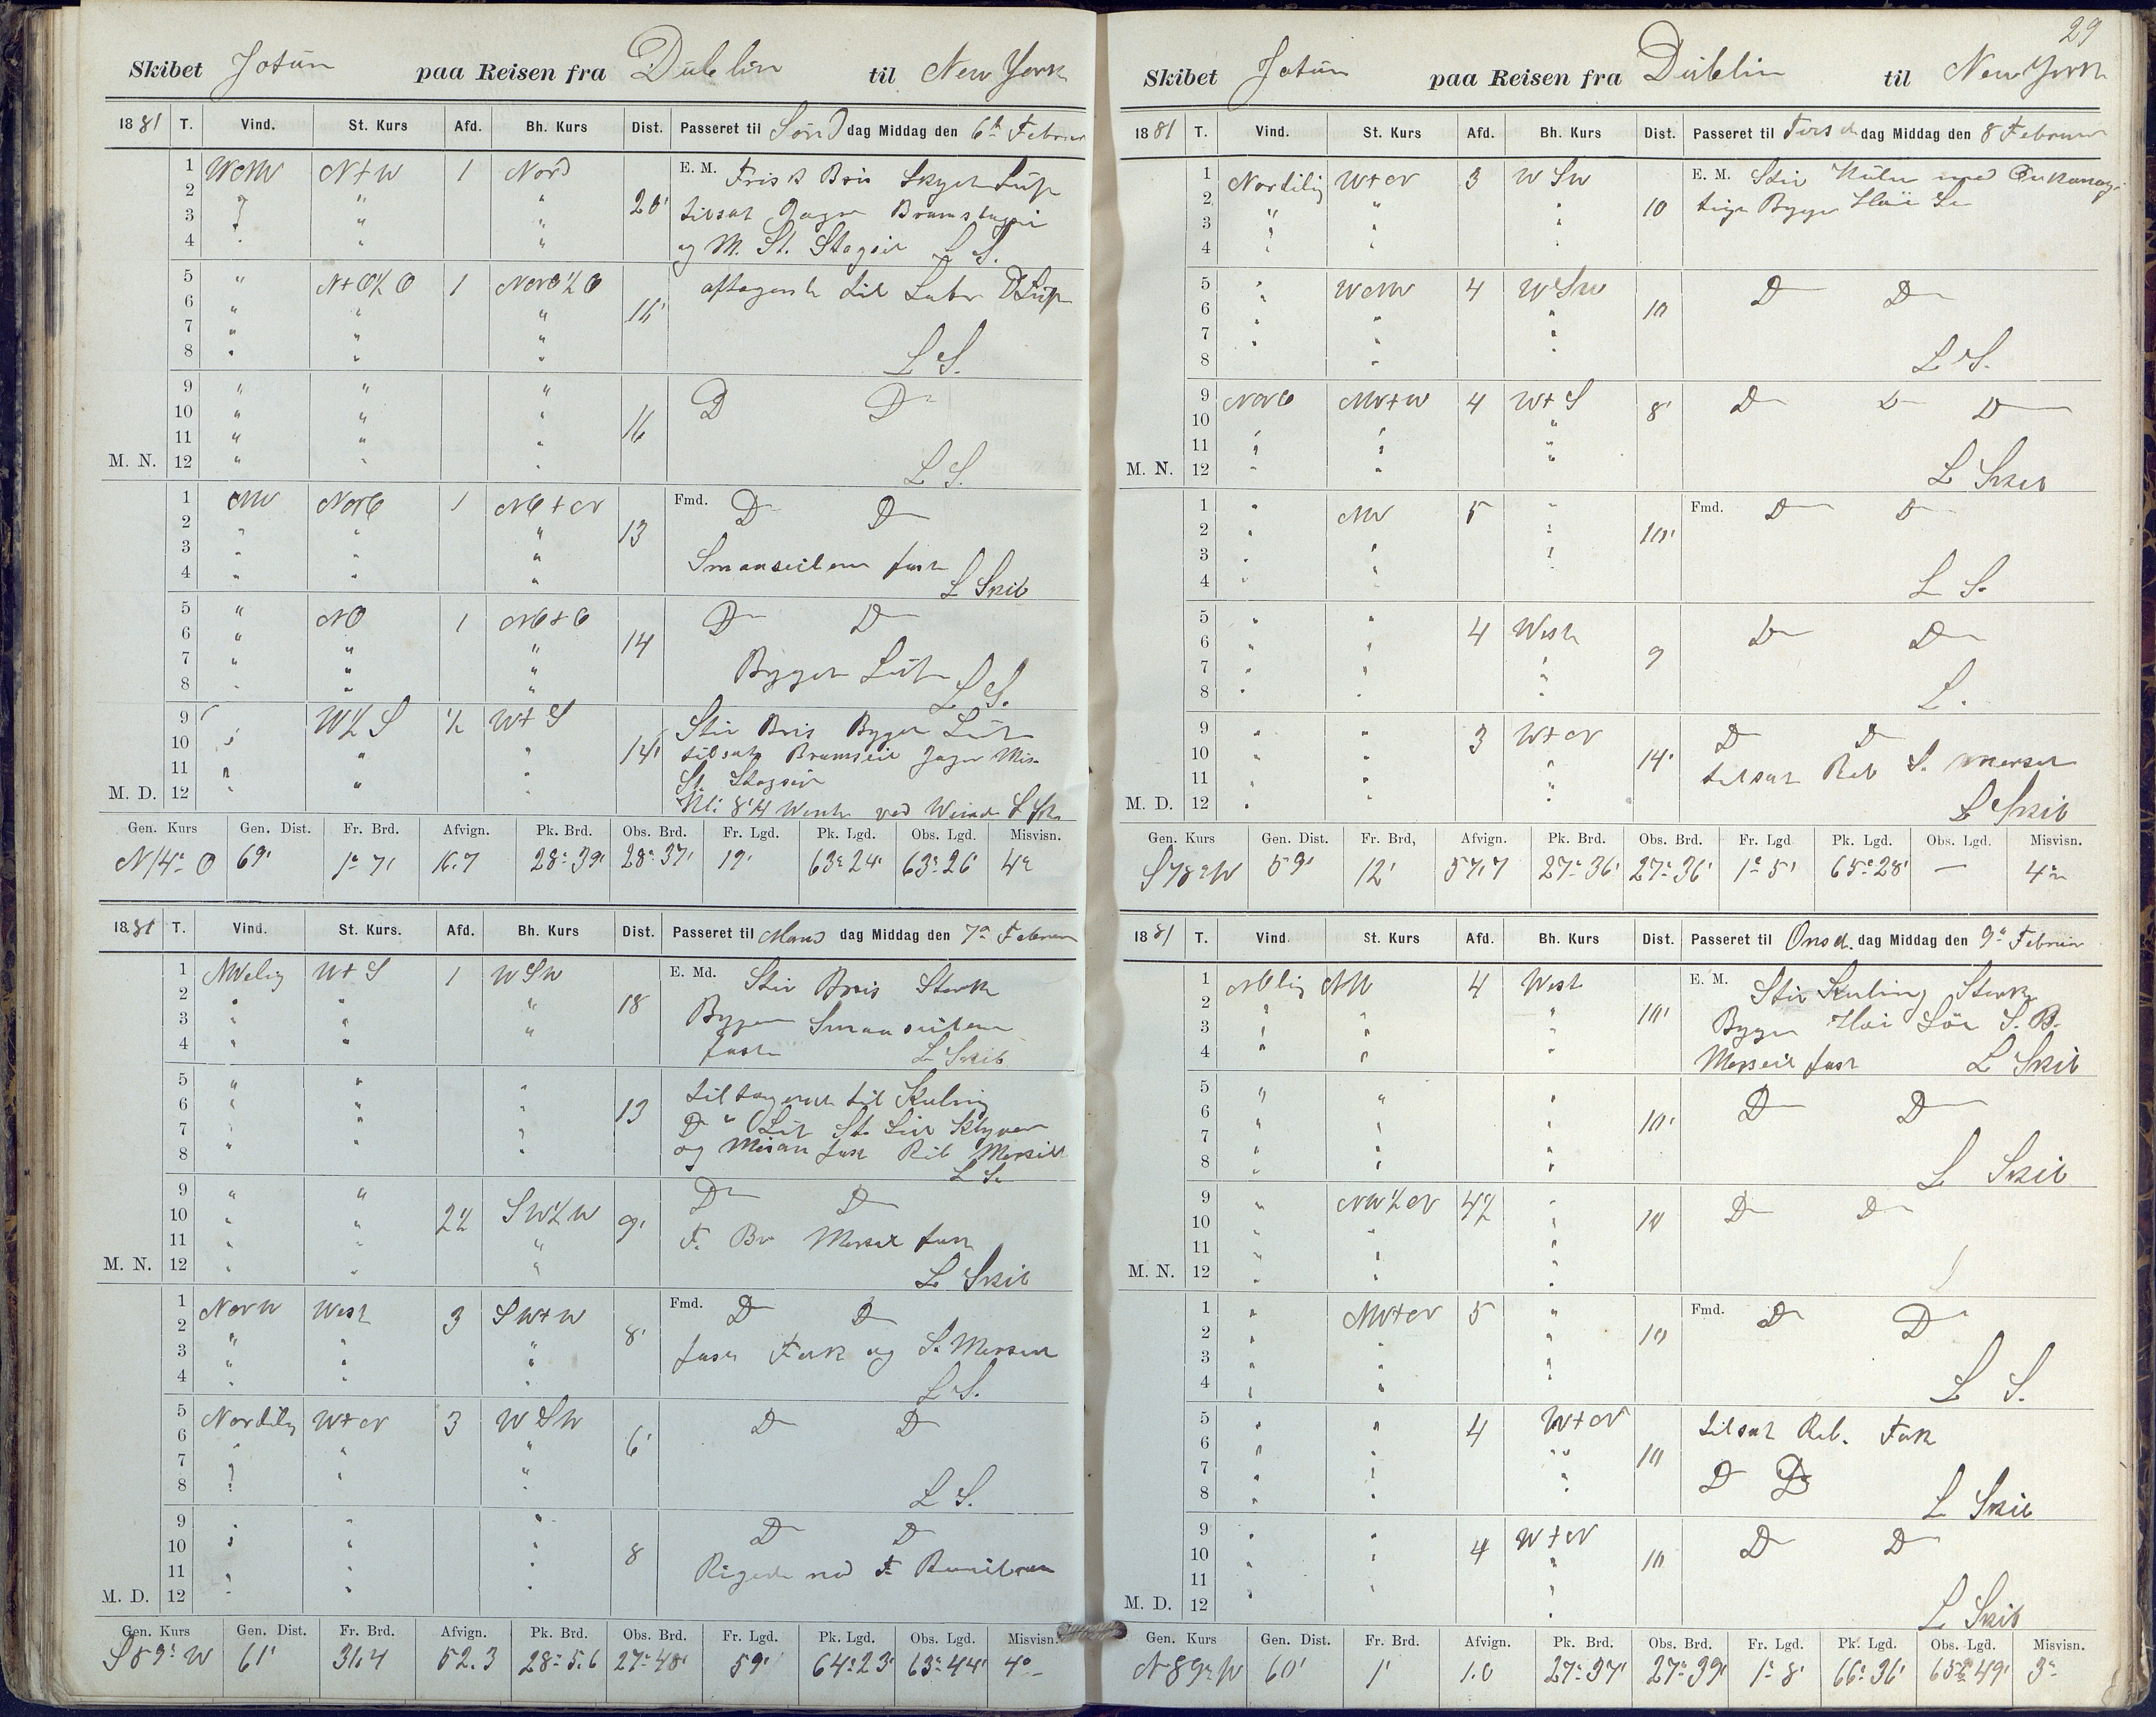 Skibet Jotun paa Reisen fra Dublin til New York
1881 T. Vind. St. Kurs Afd. Bh. Kurs Dist. Passeret til Sønd dag Middag den 6te Februar
1 WNW N+W 1 Nord E. M. Frisk Bris Skyet Luft
2 " " " 20' tilsat Jager Bramstagseil
3 " " "
4 " " " og M. St. Stagseil L S.
5 " N+O½O 1 NorO½O aftagende til Laber D Luft
6 " " " 11'
7 " " "
8 " " " L S.
9 " " " D D
10 " " " 16
11 " " "
M. N. 12 " " " L S.
1 NW NorO 1 NO+N Fmd. D D
2 " " " 13
3 " " " Smaaseilene fast
4 " " " L Skib
5 " NO 1 NO+O D D
6 " " " 14
7 " " " Byget Luft
8 " " " L S.
9 " W½S ½ W+S Stiv Bris Byget Luft
10 " " " 14' tilsat Bramseil Jager Mis.
11 " " " St. Stagseil
M. D. 12 " " " Kl: 8¼ Wendt ved Winde L Sk
Gen. Kurs Gen. Dist. Fr. Brd. Afvign. Pk. Brd. Obs. Brd. Fr. Lgd. Pk. Lgd. Obs. Lgd. Misvisn.
N14°O 69' 1°7' 16.7 28°39' 28°37' 19' 63°24' 63°26' 4°
1881 T. Vind. St. Kurs. Afd. Bh. Kurs Dist. Passeret til Mand dag Middag den 7de Februar
1 NWelig W+S 1 WSW E. Md. Stiv Bris Sterke
2 " " " 18
3 " " " Byger Smaaseilene
4 " " " fast L Skib
5 " " " tiltagende til Kuling
6 " " " 13
7 " " " D Luft St. Seil Klyver
8 " " " og Mesan fast Reb Merseil
L S.
9 " " D D
10 " " 2½ SW½W 9'
11 " " " F. Br Merseil fast
M. N. 12 " " " L Skib
1 NorW West 3 SW+W Fmd. D D
2 " " " 8'
3 " " " fast Fok og S. Merseil
4 " " " L S.
5 Nordelig W+N 3 WSW D D
6 " " " 6'
7 " " "
8 " " " L S.
9 " " " D D
10 " " " 8
11 " " " Rigede ned F.
M. D. 12 " " "
Gen. Kurs Gen. Dist. Fr. Brd. Afvign. Pk. Brd. Obs. Brd. Fr. Lgd. Pk. Lgd. Obs. Lgd. Misvisn.
S59°W 61' 31.4 52.3 28°5.6 27°48' 59' 64°23' 63°44' 4°
29
Skibet Jotun paa Reisen fra Dublin til New York
1881 T. Vind. St. Kurs Afd. Bh. Kurs Dist. Passeret til Tirsd dag Middag den 8 Februar
1 Nordelig W+N 3 WSW E. M. Stiv Kuling med Orkanag-
2 " " " 10 tige Byger Høi Sø
3 " " "
4 " " "
5 " WNW 4 WSW D D
6 " " " 10
7 " " "
8 " " " L S.
9 NorO NW+W 4 W+S 8' D D D
10 "
11 " " "
M. N. 12 " " " L Skib
1 " NW 5 " Fmd. D D
2 " " 10'
3 " " "
4 " " L S.
5 " " 4 West D D
6 " " " 9
7 " " "
8 " " " L.
9 " " 3 W+N D D
10 " " " 14' tilsat Reb S. Merseil
11 " " "
M. D. 12 " " " L Skib
Gen. Kurs Gen. Dist. Fr. Brd, Afvign. Pk. Brd. Obs. Brd. Fr. Lgd Pk. Lgd. Obs. Lgd. Misvisn.
S78°W 59' 12' 57,7 27°36' 27°36' 1°5' 65°28' — 4°
1881 T. Vind. St. Kurs Afd. Bh. Kurs Dist. Passeret til Onsd. dag Middag den 9de Februar
1 NOlig NW 4 West E. M. Stiv Kuling Sterke
2 " " " 10'
3 " " " Byger Høi Søe S. B.
4 " " " Merseil fast L Skib
5 " " " D D
6 " " " 10'
7 " " "
8 " " " L Skib
9 " NW½N 4½ " D D
10 " " " 10
11 " " "
M. N. 12 " " "
1 " NW+N 5 " Fmd. D D
2 " " " 10
3 " " "
4 " " " L S.
5 " " 4 W+N tilsat Reb. Fok
6 " " " 10
7 " " " D D
8 " " " L Skib
9 " " 4 W+N D D
10 " " " 10
11 " " "
M. D. 12 " " L Skib
Gen. Kurs Gen. Dist. Fr. Brd. Afvign. Pk. Brd. Obs. Brd. Fr. Lgd. Pk. Lgd. Obs. Lgd. Misvisn.
N89°W 60' 1' 1.0 27°37' 27°39' 1°8' 66°36' 65°49' 3°